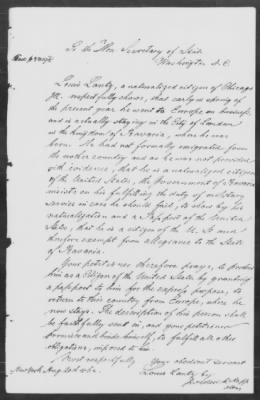 To the Hon. Secretary of State
Washington D.C.
Louis Lantz, a naturalized citizen of Chicago
Ill. respectfully shows, that early in spring of
the present year he went to Europe on business
and is actually staying in the City of Landau
in the Kingdom of Bavaria, where he was
born. He had not formally emigrated from
the mother country and as he was not provided
with evidence, that he is a naturalized citizen
of the United States, the Government of Bavaria
insists on his fulfilling the duty of military
service in case he should fail, to show by his
naturalization and a Passport of the United
States, that he is a citizen of the U. S. and
therefore exempt from allegiance to the State
of Bavaria.
Your petitioner therefore prays, to protect
him as a Citizen of the United States by granting
a passport to him for the express purpose, to
return to this country from Europe, where he
now stays. The description of his person shall
be faithfully sent in, and your petitioner
promises and binds himself, to fulfill all other
obligations, imposed to him.
Most respectfully Your obedient servant
Louis Lantz by
New York Aug